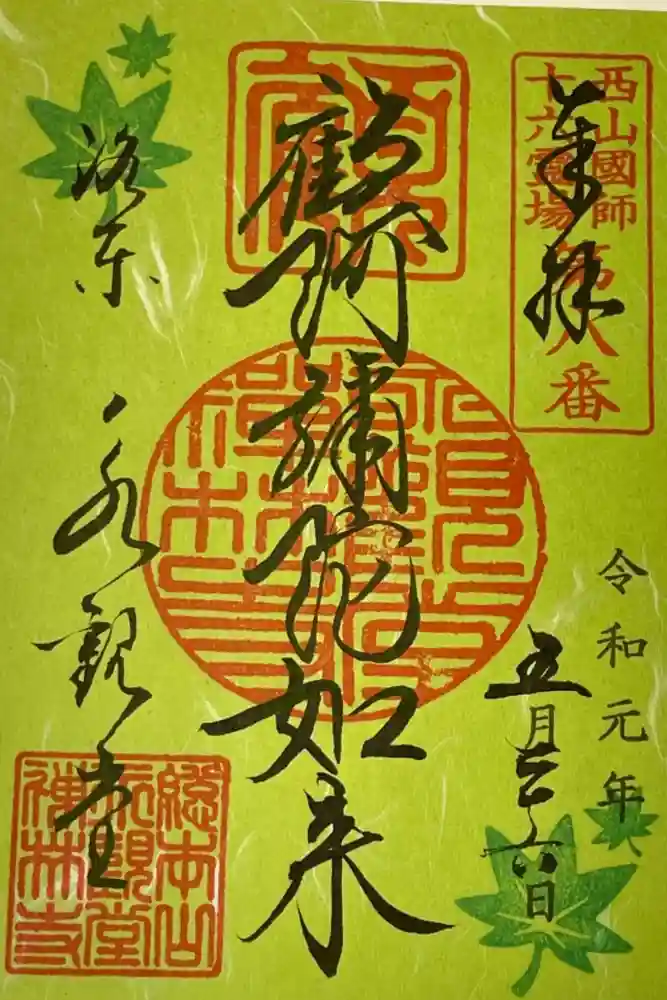 奉拝
西山國師
十六霊場
第八番
令和元年
五月二十六日
顧阿彌陀如来
洛东
永観堂
永観堂
禅林寺
總本山
永観堂
禅林寺